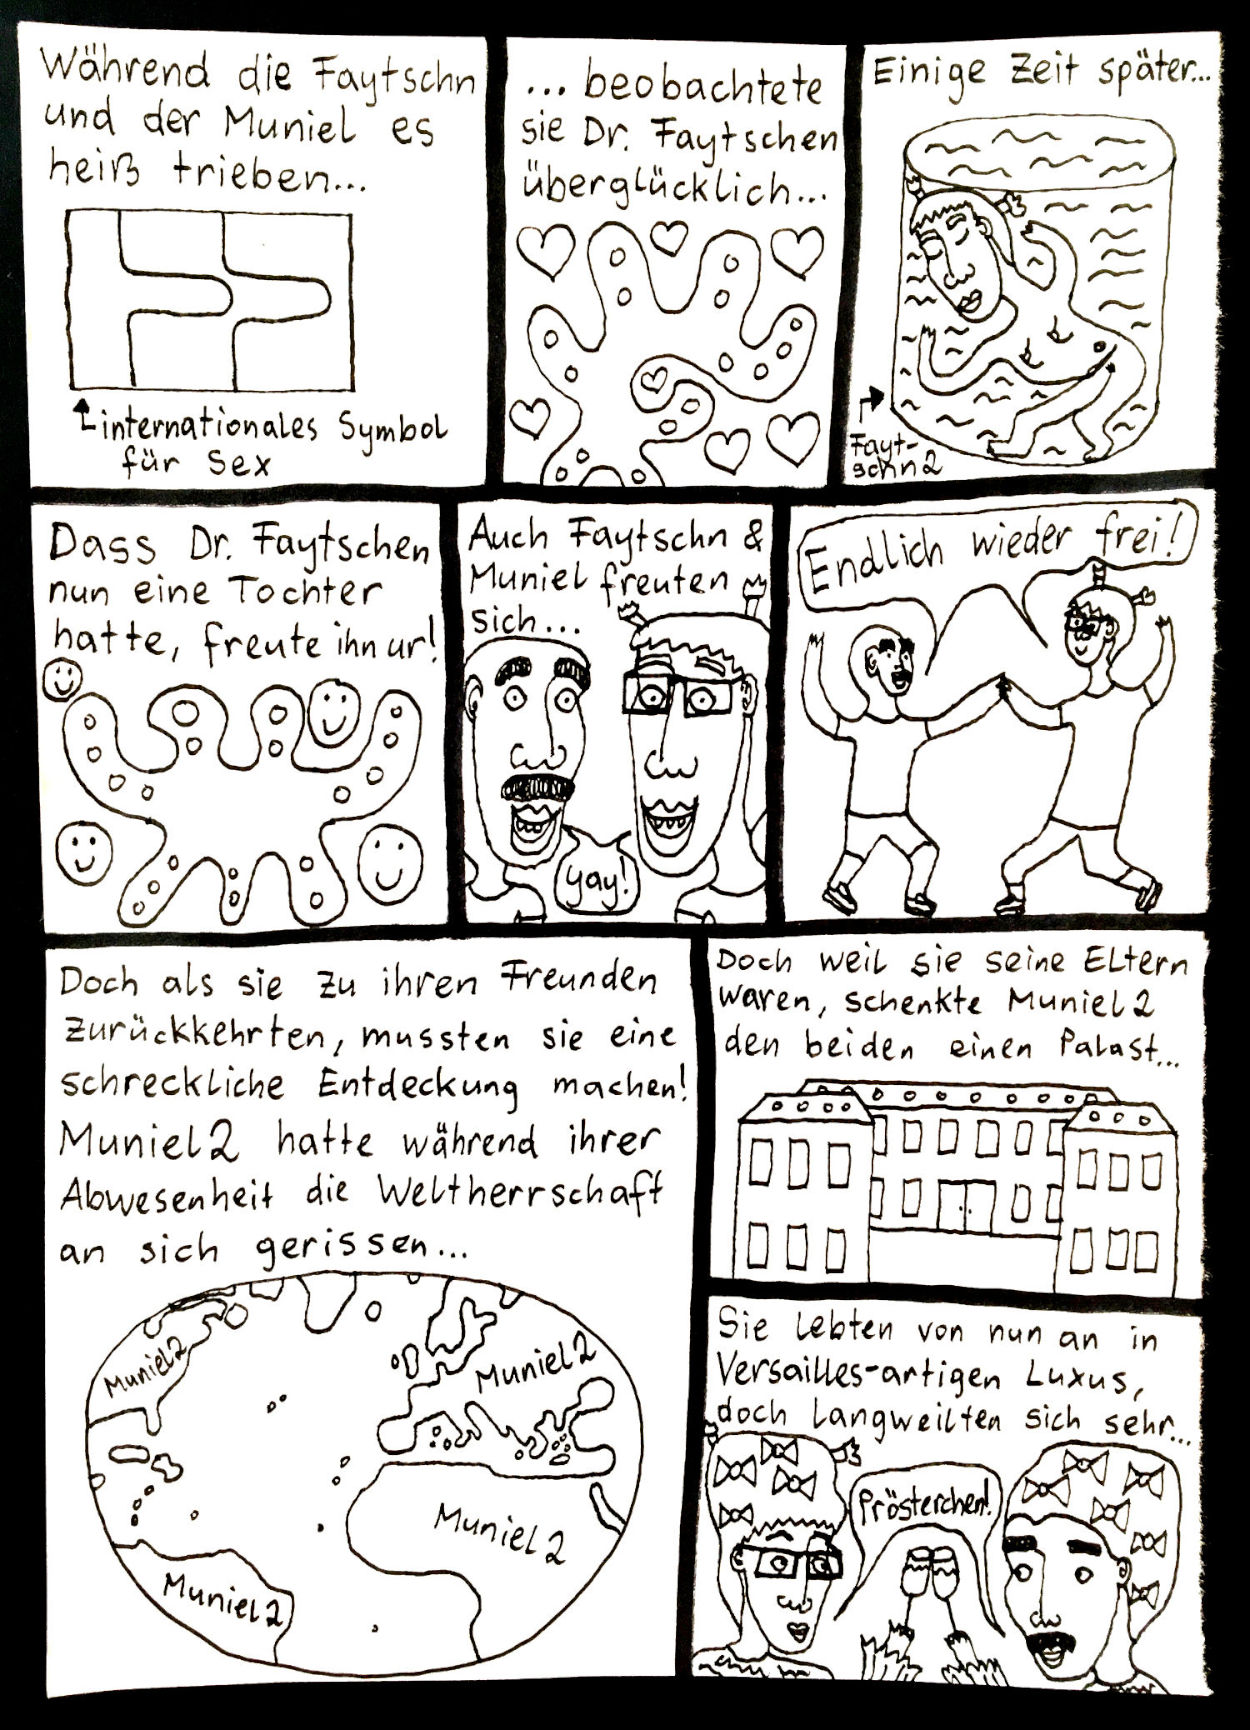 Während die Faytschn
und der Muniel es
heiß trieben...
internationales Symbol
für Sex
...beobachtete
sie Dr. Faytschen
überglücklich...
Einige Zeit später...
Fayt-
schn2
Dass Dr. Faytschen
nun eine Tochter
hatte, freute ihn ur!
Auch Faytschn &
Muniel freuten
sich...
yay!
Endlich wieder frei!
Doch als sie zu ihren Freunden
zurückkehrten, mussten sie eine
schreckliche Entdeckung machen!
Muniel2 hatte während ihrer
Abwesenheit die Weltherrschaft
an sich gerissen...
Muniel2
Muniel2
Muniel2
Muniel2
Doch weil sie seine Eltern
waren, schenkte Muniel2
den beiden einen Palast...
Sie lebten von nun an in
Versailles-artigen Luxus,
doch langweilten sich sehr...
Prösterchen!